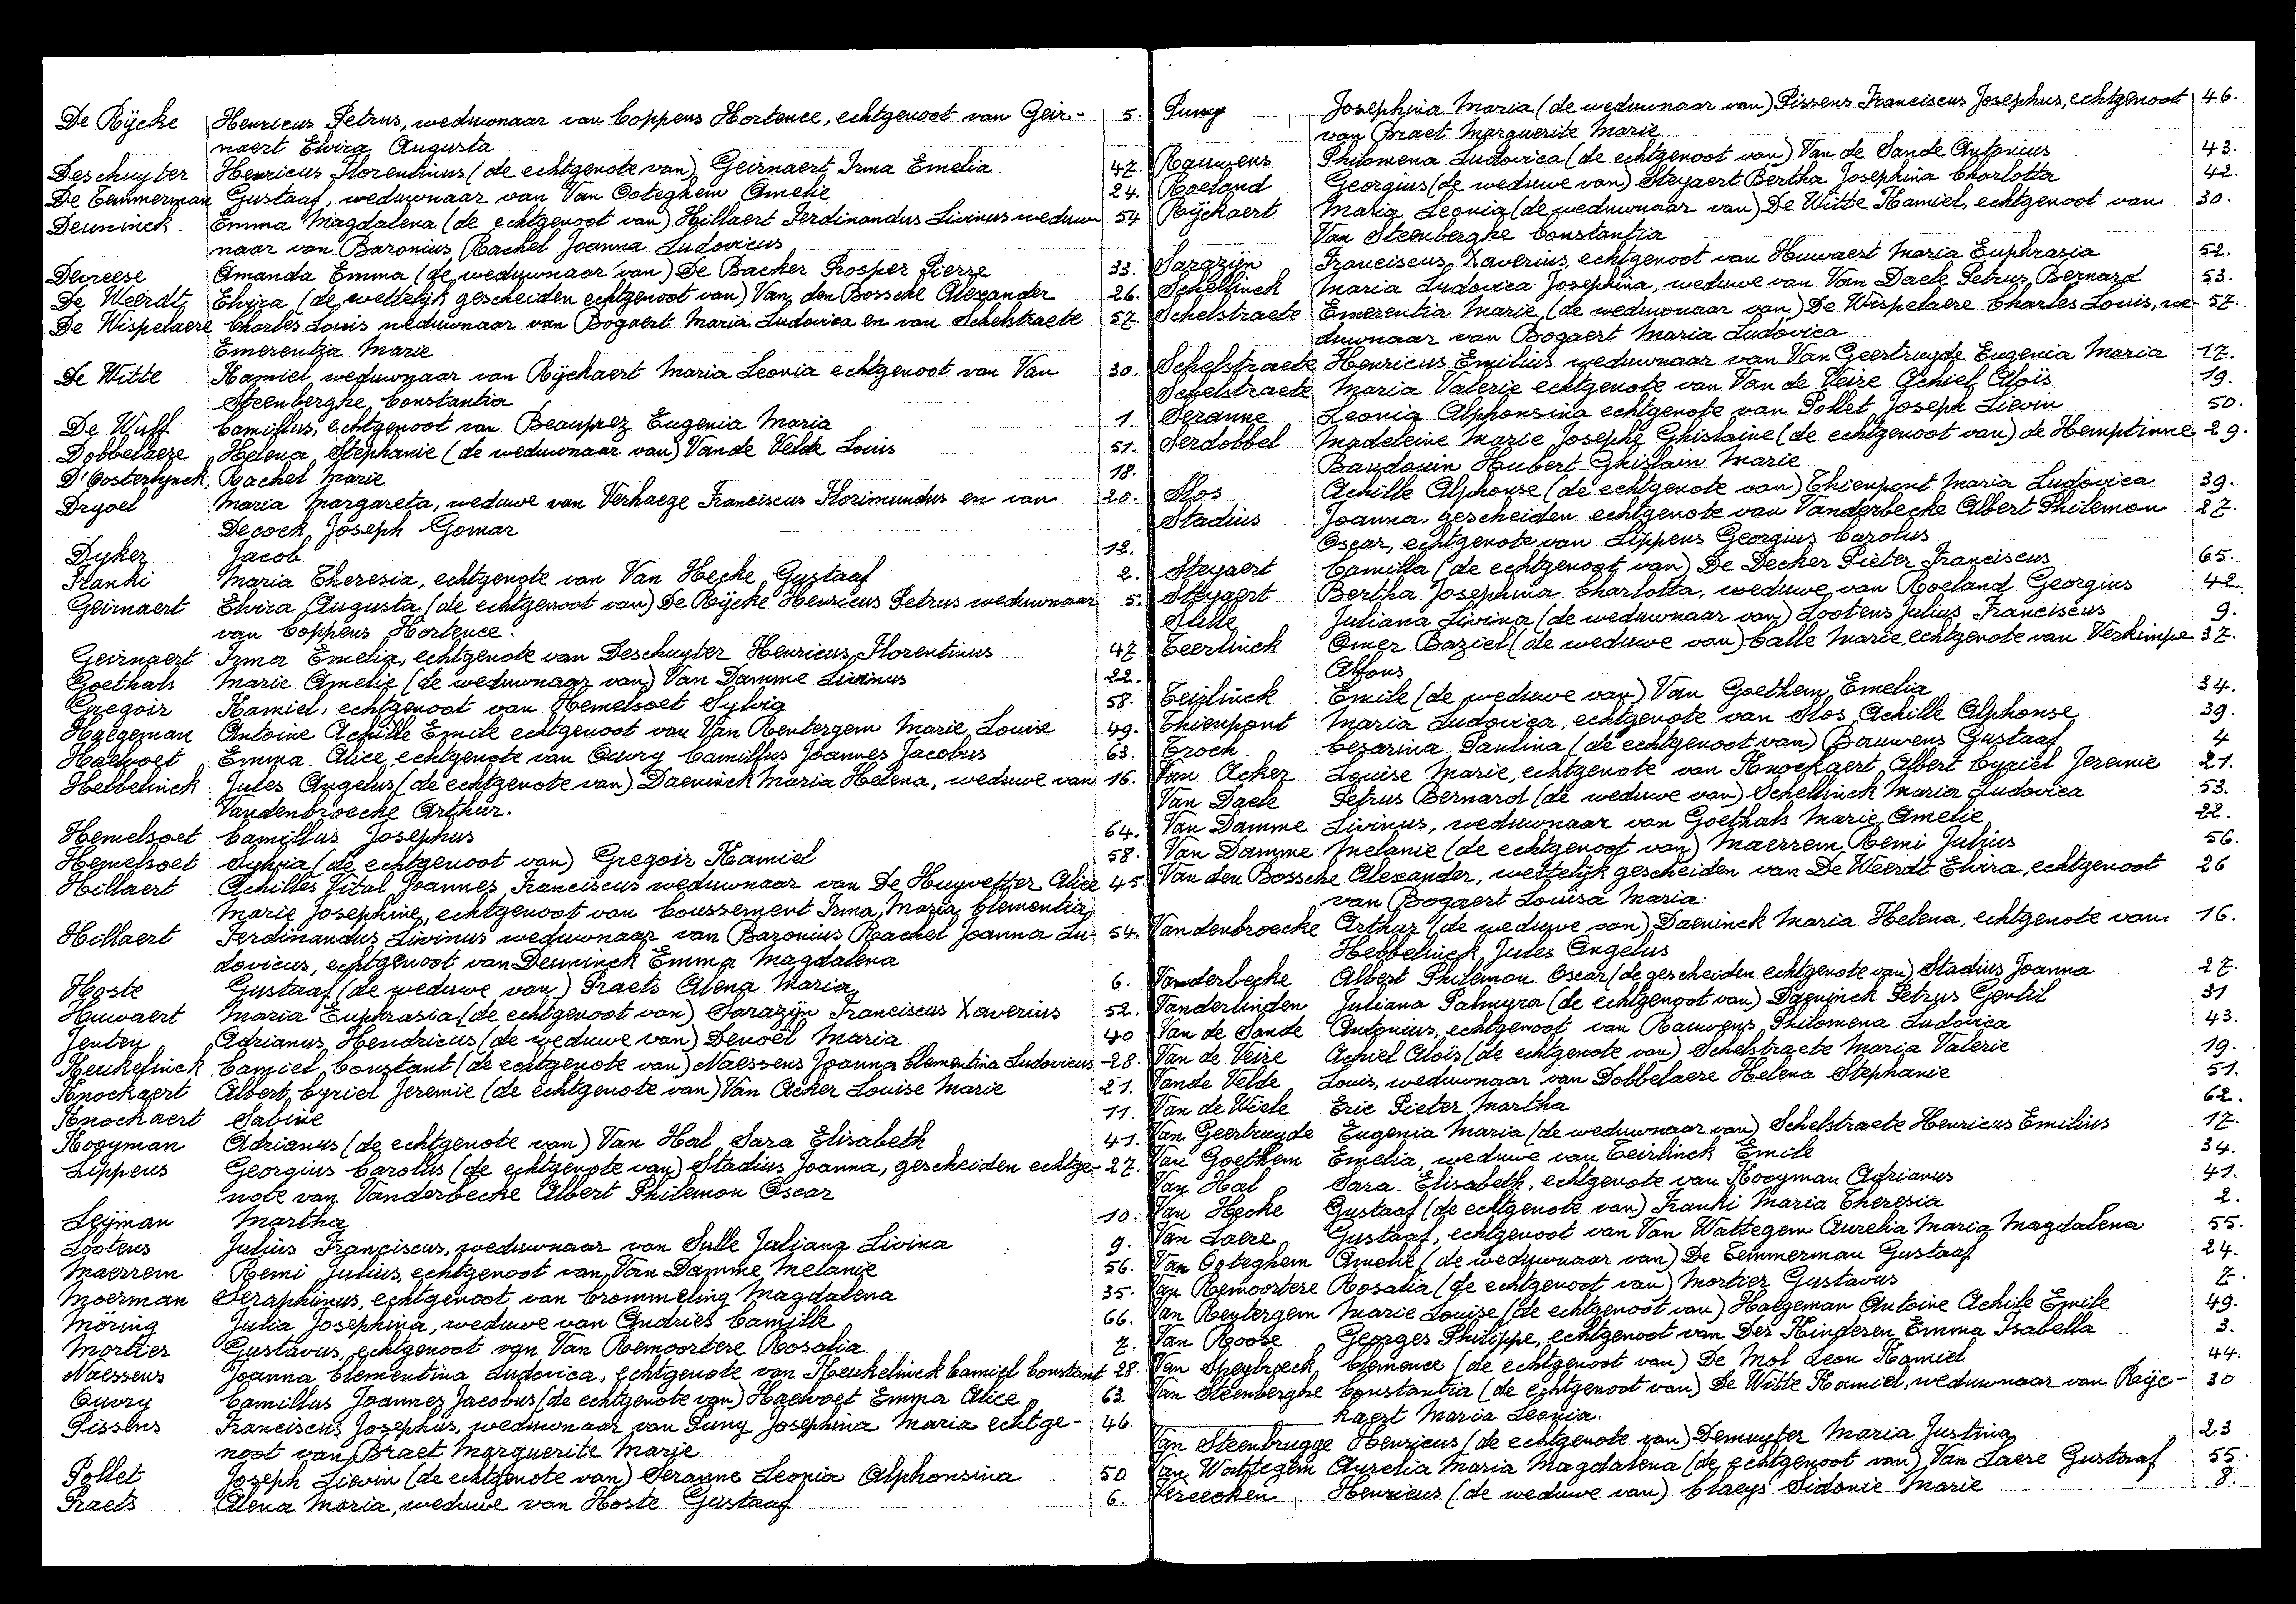 De Rÿcke Henricus Petrus, weduwnaar van Coppens Hortence, echtgenoot van Geir- 5.
naert Elvira Augusta
Deschuyter Henricus Florentinus (de echtgenote van) Geirnaert Irma Emelia 47.
De Temmerman Gustaaf, weduwnaar van Van Ooteghem Amelie 24.
Deuninck Emma Magdalena (de echtgenoot van) Hillaert Ferdinandus Livinus weduw 54
naar van Baronius Rachel Joanna Ludovicus
Devreese Amanda Emma (de weduwnaar van) De Backer Prosper Pierre 33.
De Weerdt Elvira (de wettelijk gescheiden echtgenoot van) Van den Bossche Alexander 26.
De Wispelaere Charles Louis weduwnaar van Bogaert Maria Ludovica en van Schelstraete 57.
Emerentia Marie
De Witte Kamiel weduwnaar van Rÿckaert Maria Leonia echtgenoot van Van 30.
Steenberghe Constantia
De Wulf Camillus, echtgenoot van Beauprez Eugenia Maria 1.
Dobbelaere Helena Stephanie (de weduwnaar van) Vande Velde Louis 51.
D'Oosterlynck Rachel Marie 18.
Dryoel Maria Margareta, weduwe van Verhaege Franciscus Florimundus en van 20.
Decock Joseph Gomar
Dyker Jacob 12.
Franki Maria Theresia, echtgenote van Van Hecke Gustaaf 2.
Geirnaert Elvira Augusta (de echtgenoot van) De Rÿcke Henricus Petrus weduwnaar 5.
van Coppens Hortence.
Geirnaert Irma Emelia, echtgenote van Deschuyter Henricus Florentinus 47
Goethals Marie Amelie (de weduwnaar van) Van Damme Livinus 22.
Gregoir Kamiel, echtgenoot van Hemelsoet Sylvia 58.
Haegeman Antoine Achille Emile echtgenoot van Van Rentergem Marie Louise 49.
Haelvoet Emma Alice echtgenote van Ouvry Camillus Joannes Jacobus 63.
Hebbelinck Jules Angelus (de echtgenote van) Daeninck Maria Helena, weduwe van 16.
Vandenbroecke Arthur.
Hemelsoet Camillus Josephus 64.
Hemelsoet Sylvia (de echtgenoot van) Gregoir Kamiel 58.
Hillaert Achilles Vital Joannes Franciscus weduwnaar van De Huyvetter Alice 45.
Marie Josephine, echtgenoot van Coussement Irma Maria Clementia
Hillaert Ferdinandus Livinus weduwnaar van Baronius Rachel Joanna Lu- 54.
dovicus, echtgenoot van Deuninck Emma Magdalena
Hoste Gustaaf (de weduwe van) Praets Alena Maria 6.
Huwaert Maria Euphrasia (de echtgenoot van) Sarazÿn Franciscus Xaverius 52.
Jentey Adrianus Hendricus (de weduwe van) Denoël Maria 40
Keukelinck Camiel Constant (de echtgenote van) Naessens Joanna Clementina Ludovicus 28.
Knockaert Albert Cyriel Jeremie (de echtgenote van) Van Acker Louise Marie 21.
Knockaert Sabine 11.
Kooyman Adrianus (de echtgenote van) Van Hal Sara Elisabeth 41.
Lippens Georgius Carolus (de echtgenote van) Stadius Joanna, gescheiden echtge- 27.
note van Vanderbecke Albert Philemon Oscar
Leÿman Martha 10.
Lootens Julius Franciscus, weduwnaar van Sulle Juliana Livina 9.
Maerrem Remi Julius, echtgenoot van Van Damme Melanie 56.
Moerman Seraphinus, echtgenoot van Crommeling Magdalena 35.
Moring Julia Josephina, weduwe van Andries Camille 66.
Mortier Gustavus, echtgenoot van Van Remoortere Rosalia 7.
Naessens Joanna Clementina Ludovica, echtgenote van Keukelinck Camiel Constant 28.
Ouvry Camillus Joannes Jacobus (de echtgenote van) Haelvoet Emma Alice 63.
Pissens Franciscus Josephus, weduwnaar van Puny Josephina Maria echtge- 46.
noot van Braet Marguerite Marie
Pollet Joseph Lievin (de echtgenote van) Seranne Leonia Alphonsina 50
Praets Alena Maria, weduwe van Hoste Gustaaf 6.
Puny Josephina Maria (de weduwnaar van) Pissens Franciscus Josephus, echtgenoot 46.
van Braet Marguerite Marie
Rauwens Philomena Ludovica (de echtgenoot van) Van de Sande Antonius 43.
Roeland Georgius (de weduwe van) Steyaert Bertha Josephina Charlotta 42.
Rÿckaert Maria Leonia (de weduwnaar van) De Witte Kamiel, echtgenoot van 30.
Van Steenberghe Constantia
Sarazÿn Franciscus Xaverius, echtgenoot van Huwaert Maria Euphrasia 52.
Schellinck Maria Ludovica Josephina, weduwe van Van Daele Petrus Bernard 53.
Schelstraete Emerentia Marie (de weduwnaar van) De Wispelaere Charles Louis, we- 57.
duwnaar van Bogaert Maria Ludovica
Schelstraete Henricus Emilius weduwnaar van Van Geertruyde Eugenia Maria 17.
Schelstraete Maria Valerie echtgenote van Van de Veire Achiel Aloïs 19.
Seranne Leonia Alphonsina echtgenote van Pollet Joseph Lievin 50.
Serdobbel Madeleine Marie Josephe Ghislaine (de echtgenoot van) de Hemptinne 29.
Baudouin Hubert Ghislain Marie
Slos Achille Alphonse (de echtgenote van) Thienpont Maria Ludovica 39.
Stadius Joanna, gescheiden echtgenote van Vanderbecke Albert Philemon 27.
Oscar, echtgenote van Lippens Georgius Carolus
Steyaert Camilla (de echtgenoot van) De Decker Pieter Franciscus 65.
Steyaert Bertha Josephina Charlotta, weduwe van Roeland Georgius 42.
Sulle Juliana Livina (de weduwnaar van) Lootens Julius Franciscus 9.
Teerlinck Omer Baziel (de weduwe van) Calle Marie, echtgenote van Verkimpe 37.
Alfons
Teirlinck Emile (de weduwe van) Van Goethem Emelia 34.
Thienpont Maria Ludovica, echtgenote van Slos Achille Alphonse 39.
Troch Cezarina Paulina (de echtgenoot van) Bauwens Gustaaf 4
Van Acker Louise Marie, echtgenote van Knockaert Albert Cyriel Jeremie 21.
Van Daele Petrus Bernard (de weduwe van) Schellinck Maria Ludovica 53.
Van Damme Livinus, weduwnaar van Goethals Marie Amelie 22.
Van Damme Melanie (de echtgenoot van) Maerrem Remi Julius 56.
Van den Bossche Alexander, wettelijk gescheiden van De Weerdt Elvira, echtgenoot 26
van Bogaert Louisa Maria.
Vandenbroecke Arthur (de weduwe van) Daeninck Maria Helena, echtgenote van 16.
Hebbelinck Jules Angelus
Vanderbecke Albert Philemon Oscar (de gescheiden echtgenote van) Stadius Joanna 27.
Vanderlinden Juliana Palmyra (de echtgenoot van) Daeninck Petrus Gentil 31
Van de Sande Antonius, echtgenoot van Rauwens Philomena Ludovica 43.
Van de Veire Achiel Aloïs (de echtgenote van) Schelstraete Maria Valerie 19.
Vande Velde Louis, weduwnaar van Dobbelaere Helena Stephanie 51.
Van de Wiele Eric Pieter Martha 62.
Van Geertruyde Eugenia Maria (de weduwnaar van) Schelstraete Henricus Emilius 17.
Van Goethem Emelia, weduwe van Teirlinck Emile 34.
Van Hal Sara Elisabeth, echtgenote van Kooyman Adrianus 41.
Van Hecke Gustaaf (de echtgenote van) Franki Maria Theresia 2.
Van Laere Gustaaf, echtgenoot van Van Wattegem Aurelia Maria Magdalena 55.
Van Ooteghem Amelie (de weduwnaar van) De Temmerman Gustaaf 24.
Van Remoortere Rosalia (de echtgenoot van) Mortier Gustavus 7.
Van Rentergem Marie Louise (de echtgenoot van) Haegeman Antoine Achile Emile 49.
Van Roose Georges Philippe, echtgenoot van Der Kinderen Emma Isabella 3.
Van Speybroeck Clemence (de echtgenoot van) De Mol Leon Kamiel 44.
Van Steenberghe Constantia (de echtgenoot van) De Witte Kamiel, weduwnaar van Rÿc- 30
kaert Maria Leonia.
Van Steenbrugge Henricus (de echtgenote van) Demuyter Maria Justina 23
Van Wattegem Aurelia Maria Magdalena (de echtgenoot van) Van Laere Gustaaf 55.
Vereecken Henricus (de weduwe van) Claeys Sidonie Marie 8.